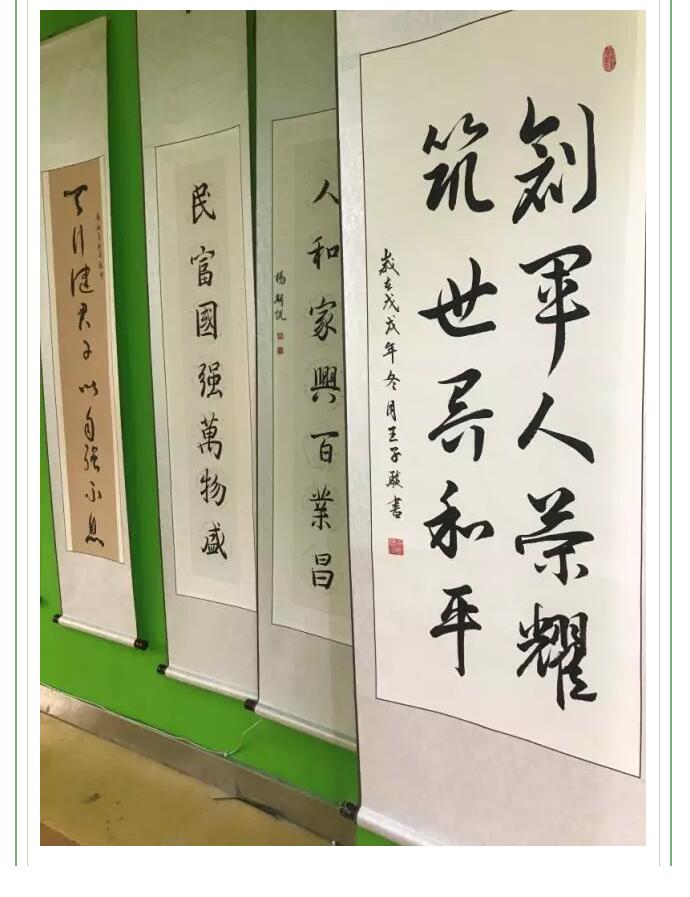 創軍人荣耀
筑世界和平
歲在戊戌年冬月王子駿書
人和家興百業昌
楊朝悦
民富國强萬物盛
天行健君子以自强不息